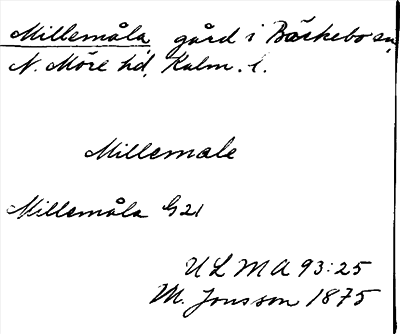 Millemåla, gård i Bäckebo sn,
N. Möre hd, Kalm. l.
Millemale
Millemåla G21
ULMA 93:25
M. Jonsson 1875